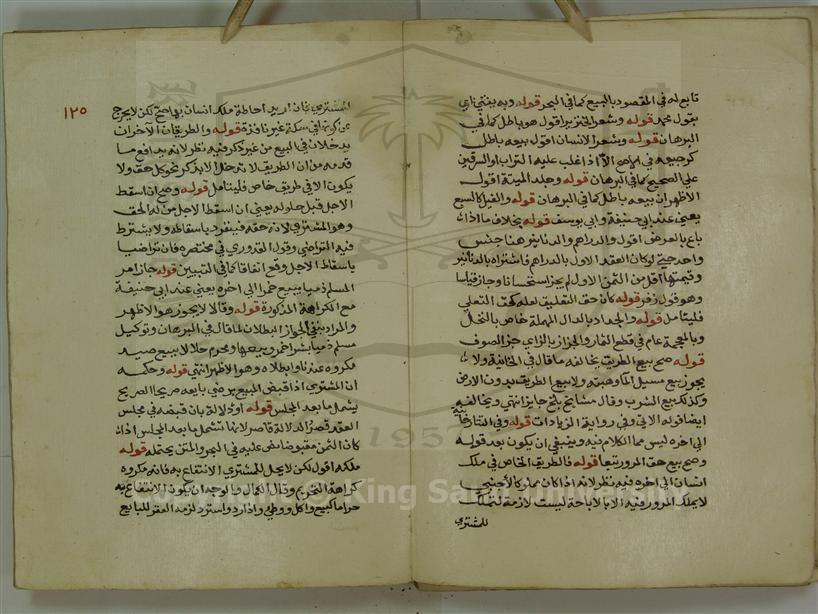 تابع له في المقصود بالبيع كما في البحر قوله وبه بنتي اي
يقول محمد قوله وشعر الخنزير اقول هو باطل كما في
البرهان قوله وشعر الانسان اقول بيعه باطل
كرجيعه في الاصح الا اذا غلب عليه التراب او السرقين
علي الصحيح كما في البرهان قوله وجلد الميتة اقول
الاظهر ان بيعه باطل كما في البرهان قوله والفيل كالسبع
يعني عند ابي حنيفة وابي يوسف قوله بخلاف ما اذا
باع بالعرض اقول والدراهم والدنانير هنا جنس
واحد حتي لو كان العقد الاول بالدراهم فاشتراه بالدنانير
وقيمتها اقل من الثمن الاول لم يجز استحسانا وجاز قياسا
وهو قول زفر قوله كان حق التعليق معه كحق التعلي
فليتامل قوله والجداد بالدال المهملة خاص بالنخل
وبالمعجمة عام في قطع الثمار والجزاز بالزاي جز الصوف
قوله صح بيع الطريق يخالفه ما قال في الخانية ولا
يجوز بيع مسيل الماء وهبته ولا بيع الطريق بدون الارض
وكذلك بيع الشرب وقال مشايخ بلخ جايز انتهي ويخالفه
ايضا قوله الاتي وفي رواية الزيادات قوله وفي التتارخانية
الي اخره ليس مما الكلام فيه وينبغي ان يكون بعد قوله
وصح بيع حق المرور تبعا قوله فالطريق الخاص في ملك
انسان الي اخره فيه نظر لانه اذا كان مملوكا لاجنبي
لا يملك المرور فيه الا بالاباحة ليست لازمة لتملك
للمشتري
١٢٥
المشتري فان اريد احاطة ملك انسان بها صح لكن لا يخرج
عن كونها في سكة غير نافذة قوله والطريقان الآخران
يدخلان في البيع من غير ذكر فيه نظر لانه يدافع ما
قدمه من ان الطريق لا تدخل الا بذكر نحو كل حق ولا
يكون الا في طريق خاص فليتامل قوله وصح ان اسقط
الاجل قبل حلوله يعني ان اسقط الاجل من له الحق
وهو المشتري لانه حقه فينفرد باسقاطه ولا يشترط
فيه التراضي وقول القدوري في مختصره فان تراضيا
باسقاط الاجل وقع اتفاقا كما في التبيين قوله جاز امر
المسلم ذميا ببيع خمر الي اخره يعني عند ابي حنيفة
مع الكراهة المذكورة قوله وقالا لا يجوز هو الاظهر
والمراد بنفي الجواز البطلان لما قال في البرهان وتوكيل
مسلم ذميا بشراء خمر وبيعها ومحرم حلالا ببيع صيد
مكروه عنده وابطلاه وهو الاظهر انتهي قوله وحكمه
ان المشتري اذا قبض المبيع برضي بايعه صريحا الصريح
يشمل ما بعد المجلس قوله او دلالة بان قبضه في مجلس
العقد قصر الدلالة قاصر لانها تشمل ما بعد المجلس اذا
كان الثمن مقبوضا نص عليه في البحر والمتن يحتمله قوله
ملكه اقول لكن لا يحل للمشتري الانتفاع به فانه مكروه
كراهة التحريم وقال الكمال والوجه ان يكون الانتفاع به
حراما كبيع واكل ووطي واذا رد واسترد لزمه العقر للبايع